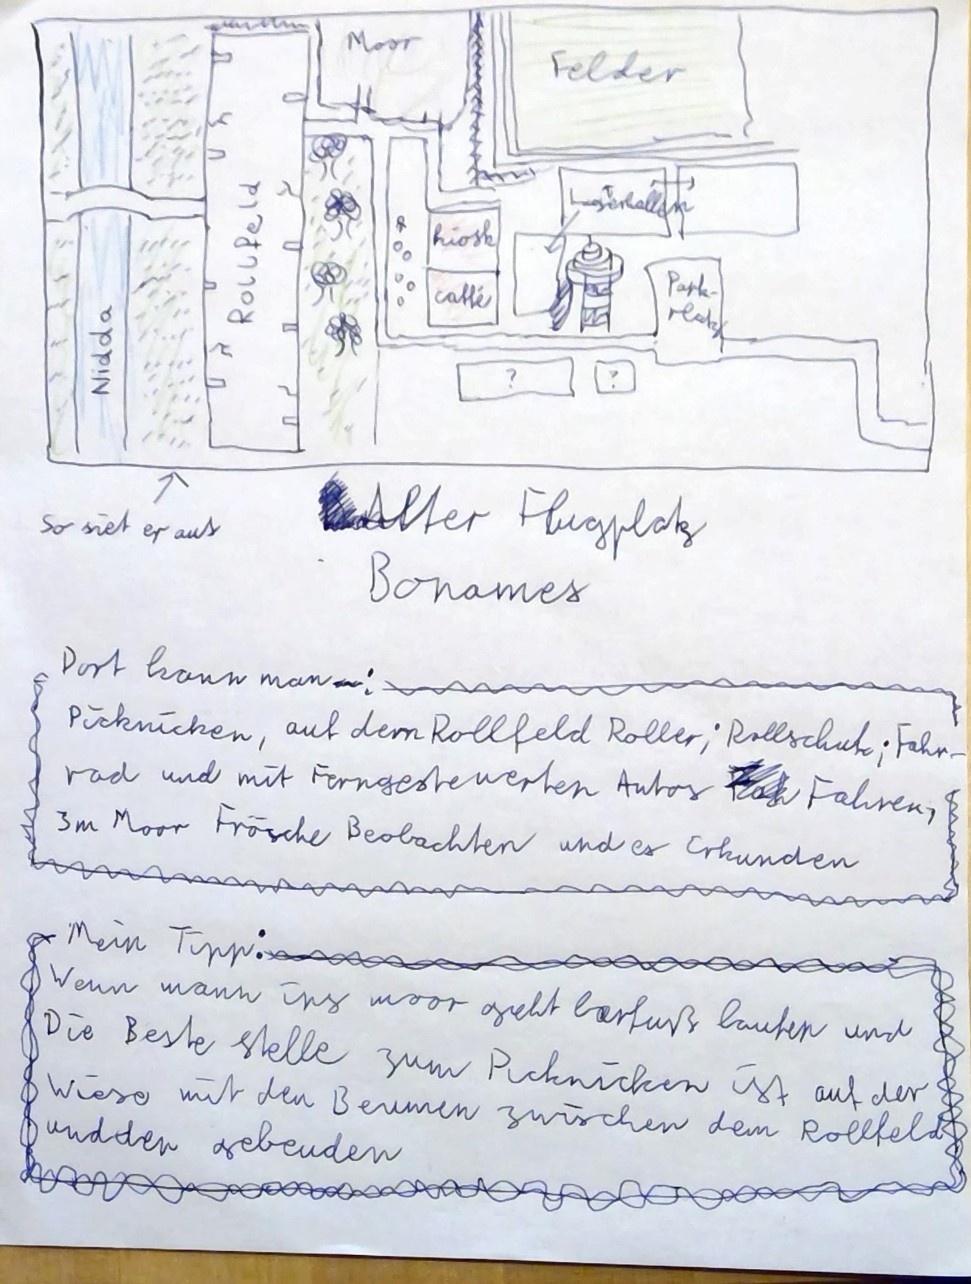 Moor
Felder
Rollfeld
Nidda
Lagerhallen
Kiosk
caffé
Park-
Platz
?
?
So siet er aus
Alter Flugplatz
Bonames
Dort kann man:
Picknicken, auf dem Rollfeld Roller, Rollschuh, Fahr-
rad und mit Ferngestewerten Autos Fahren,
Im Moor Frösche Beobachten und es Erkunden
Mein Tipp:
Wenn mann ins moor geht barfuß laufen und
Die Beste stelle zum Picknicken ist auf der
Wiese mit den Beumen zwischen dem Rollfeld
und den gebeuden